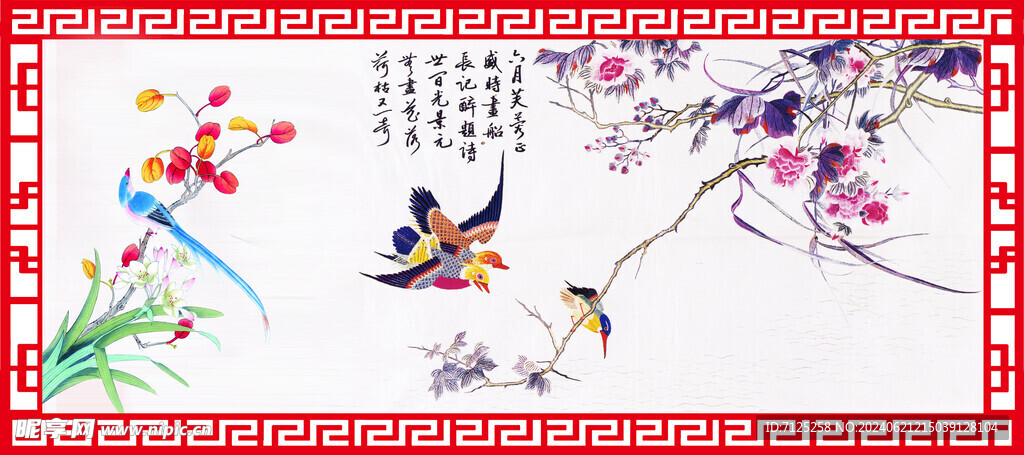 六月芙蓉正
盛時畫船
長记醉題诗
世间光景元
無盡花落
荷枯又一奇
昵享网 www.nipic.cn
ID:7125258 NO:20240621215039128104